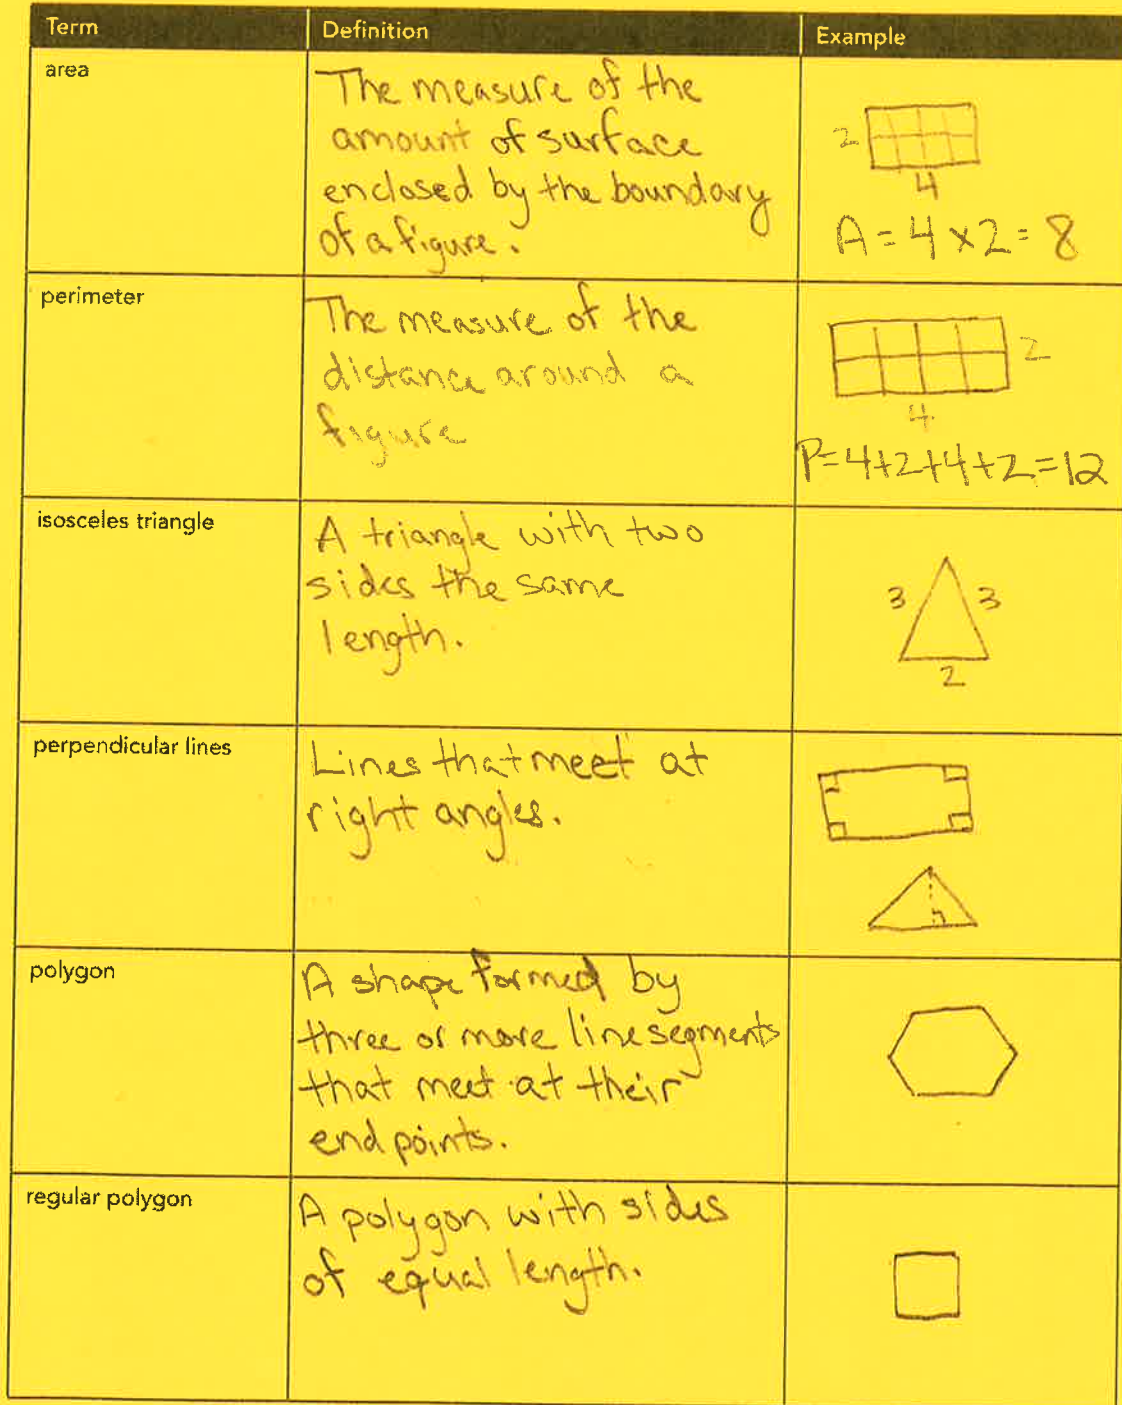 Term Definition Example
area
The measure of the
amount of surface
enclosed by the boundary
of a figure.
2
4
A = 4 x 2 = 8
perimeter
The measure of the
distance around a
figure
2
4
P=4+2+4+2=12
isosceles triangle
A triangle with two
sides the same
length.
3 3
2
perpendicular lines
Lines that meet at
right angles.
polygon
A shape formed by
three or more line segments
that meet at their
endpoints.
regular polygon
A polygon with sides
of equal length.